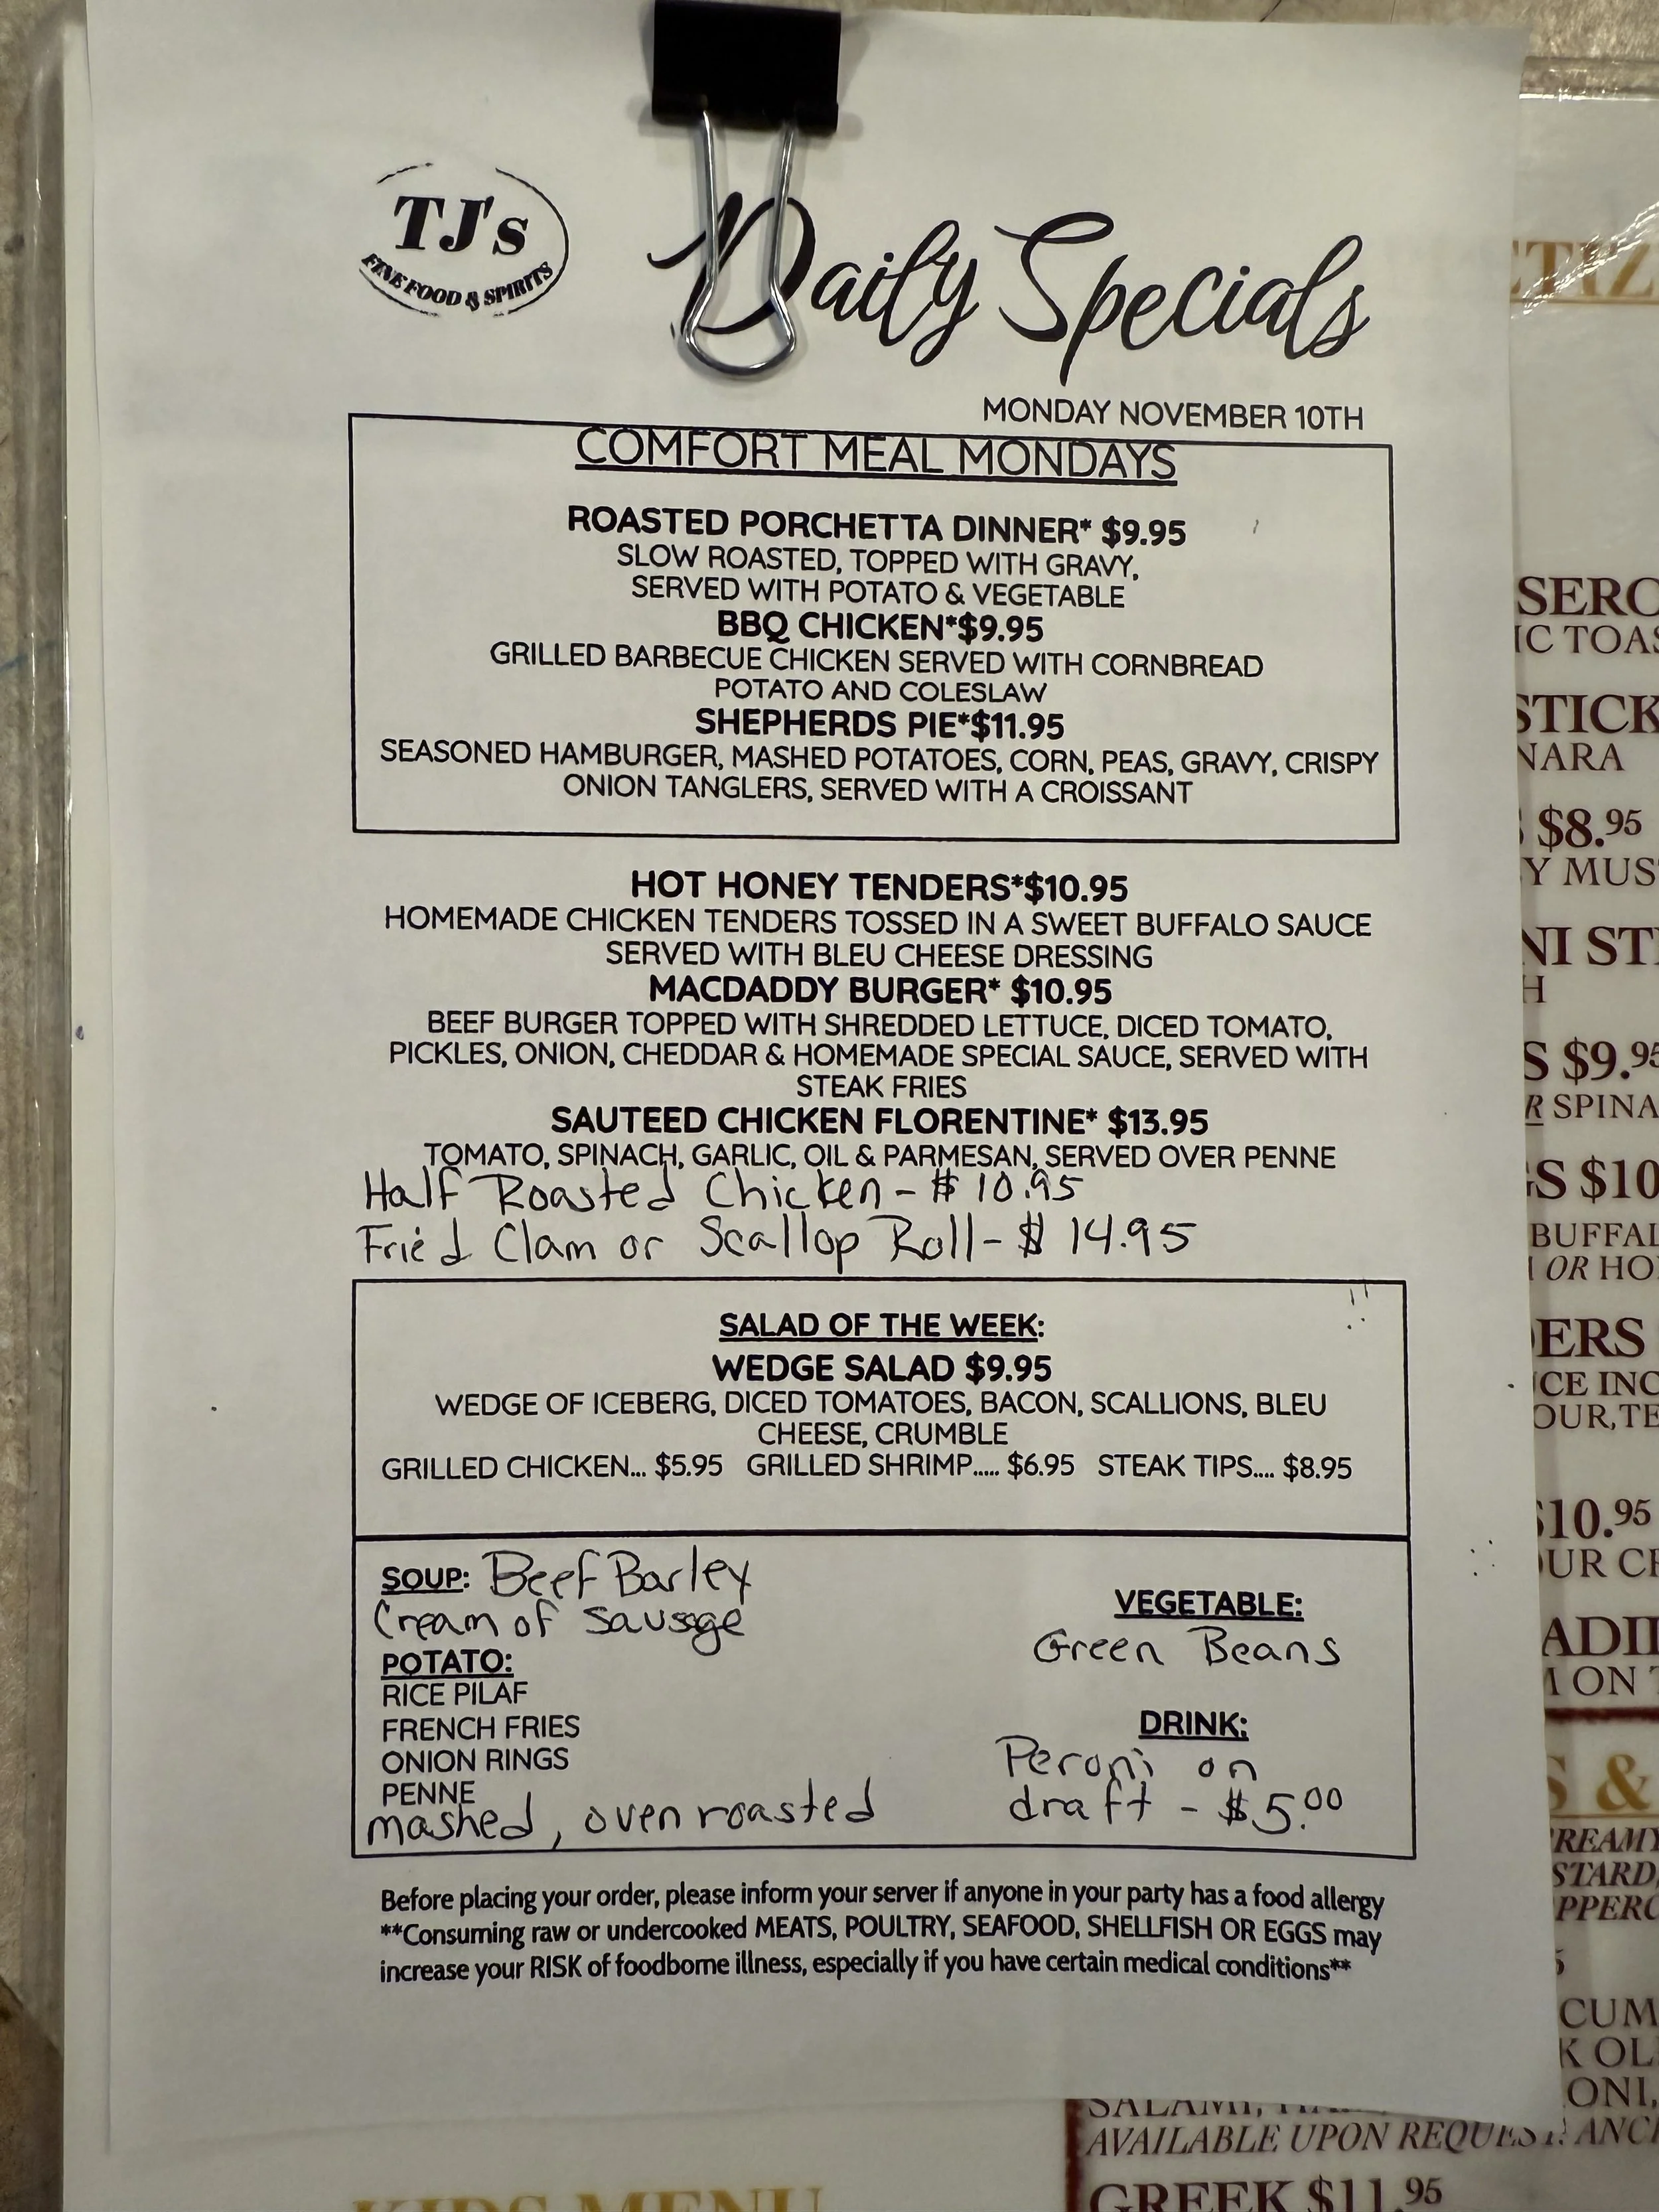 TJ's
FINE FOOD & SPIRITS
Daily Specials
MONDAY NOVEMBER 10TH
COMFORT MEAL MONDAYS
ROASTED PORCHETTA DINNER* $9.95
SLOW ROASTED, TOPPED WITH GRAVY,
SERVED WITH POTATO & VEGETABLE
BBQ CHICKEN*$9.95
GRILLED BARBECUE CHICKEN SERVED WITH CORNBREAD
POTATO AND COLESLAW
SHEPHERDS PIE*$11.95
SEASONED HAMBURGER, MASHED POTATOES, CORN, PEAS, GRAVY, CRISPY
ONION TANGLERS, SERVED WITH A CROISSANT
HOT HONEY TENDERS*$10.95
HOMEMADE CHICKEN TENDERS TOSSED IN A SWEET BUFFALO SAUCE
SERVED WITH BLEU CHEESE DRESSING
MACDADDY BURGER* $10.95
BEEF BURGER TOPPED WITH SHREDDED LETTUCE, DICED TOMATO,
PICKLES, ONION, CHEDDAR & HOMEMADE SPECIAL SAUCE, SERVED WITH
STEAK FRIES
SAUTEED CHICKEN FLORENTINE* $13.95
TOMATO, SPINACH, GARLIC, OIL & PARMESAN, SERVED OVER PENNE
Half Roasted Chicken - $10.95
Fried Clam or Scallop Roll - $14.95
SALAD OF THE WEEK:
WEDGE SALAD $9.95
WEDGE OF ICEBERG, DICED TOMATOES, BACON, SCALLIONS, BLEU
CHEESE, CRUMBLE
GRILLED CHICKEN... $5.95 GRILLED SHRIMP..... $6.95 STEAK TIPS.... $8.95
SOUP: Beef Barley
Cream of Sausage
POTATO:
RICE PILAF
FRENCH FRIES
ONION RINGS
PENNE
mashed, oven roasted
VEGETABLE:
Green Beans
DRINK:
Peroni on
draft - $5.00
Before placing your order, please inform your server if anyone in your party has a food allergy
**Consuming raw or undercooked MEATS, POULTRY, SEAFOOD, SHELLFISH OR EGGS may
increase your RISK of foodborne illness, especially if you have certain medical conditions**
$8.95
$9.95
$10.95
AVAILABLE UPON REQUEST
GREEK $11.95
KIDS MENU